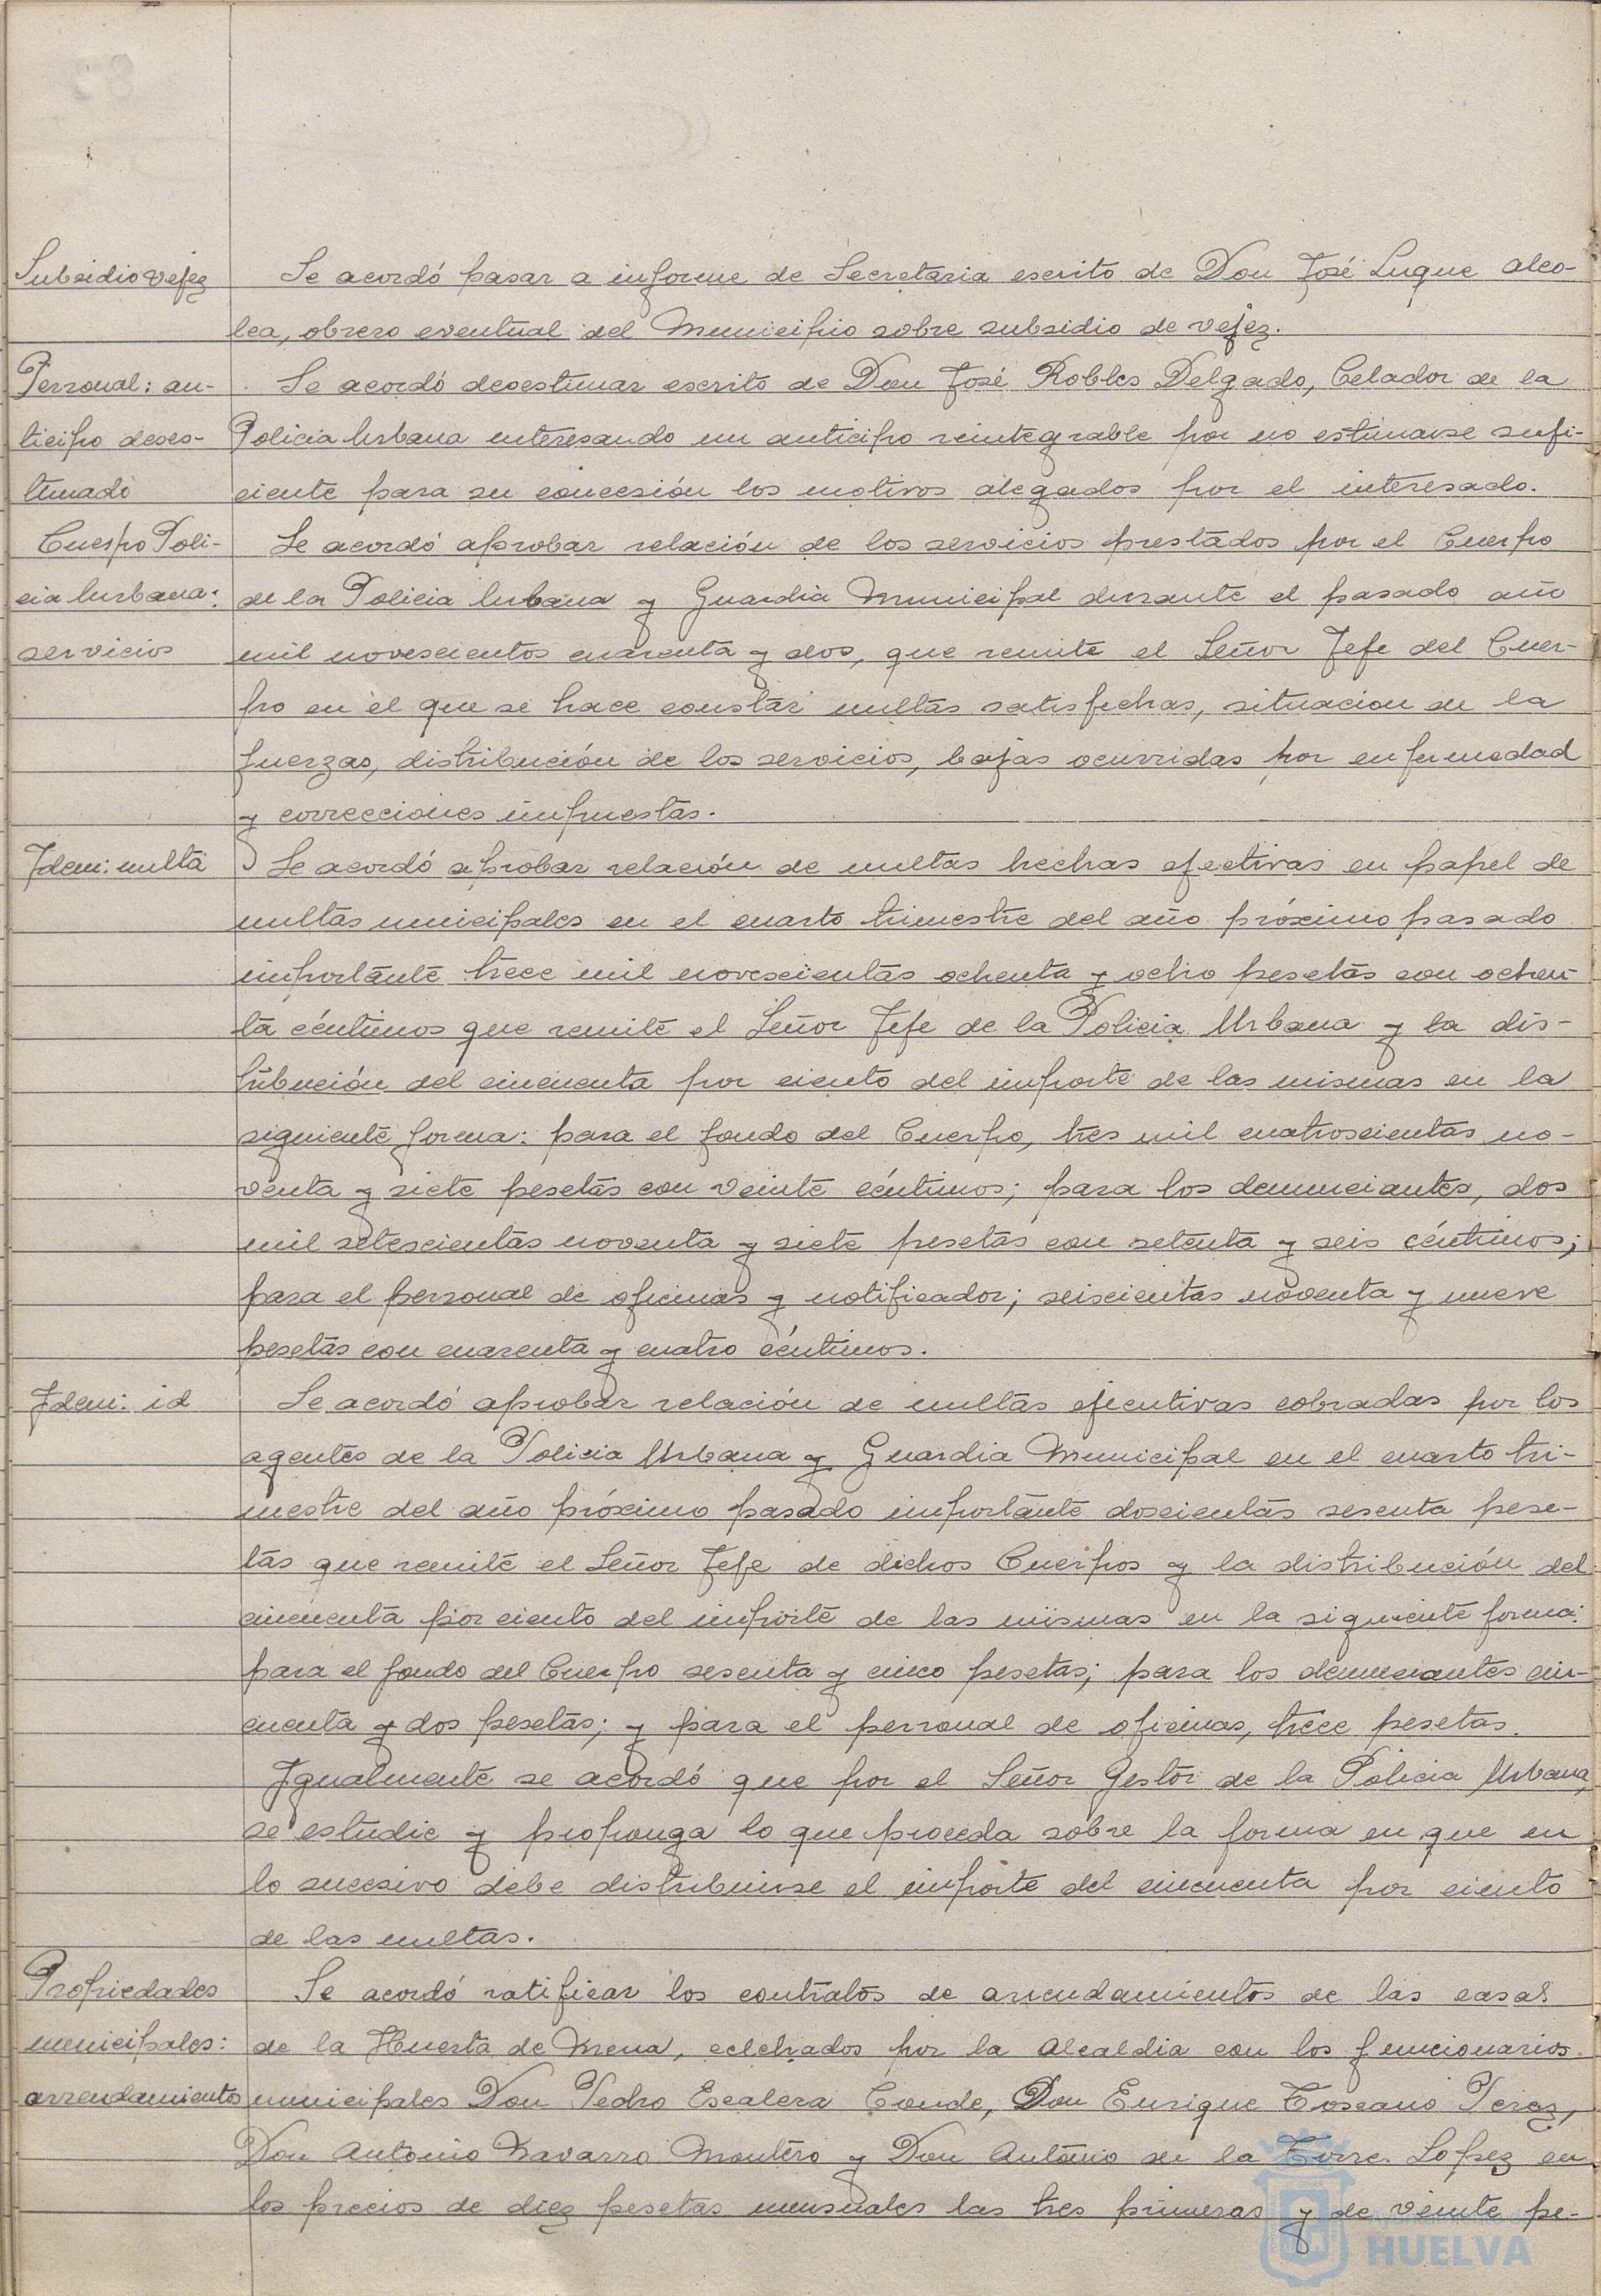 Subsidio vejez
Se acordó pasar a informe de Secretaria escrito de Don José Luque Alco-
lea, obrero eventual del Municipio sobre subsidio de vejez.
Personal: an-
Se acordó desestimar escrito de Don José Robles Delgado, Celador de la
ticipo deses-
Policia Urbana interesando un anticipo reintegrable por no estimarse sufi-
timado
ciente para su concesión los motivos alegados por el interesado.
Cuerpo Poli-
Se acordó aprobar relación de los servicios prestados por el Cuerpo
cia Urbana:
de la Policia Urbana y Guardia Municipal durante el pasado año
servicios
mil novescientos cuarenta y dos, que remite el Señor Jefe del Cuer-
po en el que se hace constar multas satisfechas, situacion de la
fuerzas, distribución de los servicios, bajas ocurridas por enfermedad
y correcciones impuestas.
Idem: multa
Se acordó aprobar relación de multas hechas efectivas en papel de
multas municipales en el cuarto trimestre del año próximo pasado
importante trece mil novescientas ochenta y ocho pesetas con ochen-
ta céntimos que remite el Señor Jefe de la Policia Urbana y la dis-
tribución del cincuenta por ciento del importe de las mismas en la
siguiente forma: para el fondo del Cuerpo, tres mil cuatroscientas no-
venta y siete pesetas con veinte céntimos; para los denunciantes, dos
mil setescientas noventa y siete pesetas con setenta y seis céntimos;
para el personal de oficinas y notificador; seiscientas noventa y nueve
pesetas con cuarenta y cuatro céntimos.
Idem: id
Se acordó aprobar relación de multas ejecutivas cobradas por los
agentes de la Policia Urbana y Guardia Municipal en el cuarto tri-
mestre del año próximo pasado importante doscientas sesenta pese-
tas que remite el Señor Jefe de dichos Cuerpos y la distribución del
cincuenta por ciento del importe de las mismas en la siguiente forma:
para el fondo del Cuerpo sesenta y cinco pesetas; para los denunciantes cin-
cuenta y dos pesetas; y para el personal de oficinas, trece pesetas.
Igualmente se acordó que por el Señor Gestor de la Policia Urbana,
se estudie y proponga lo que proceda sobre la forma en que en
lo sucesivo debe distribuirse el importe del cincuenta por ciento
de las multas.
Propiedades
Se acordó ratificar los contratos de arrendamientos de las casas
municipales:
de la Huerta de Mena, celebrados por la Alcaldia con los funcionarios
arrendamientos
municipales Don Pedro Escalera Conde, Don Enrique Toscano Perez,
Don Antonio Navarro Montero y Don Antonio de la Torre Lopez en
los precios de diez pesetas mensuales las tres primeras y de veinte pe-
HUELVA